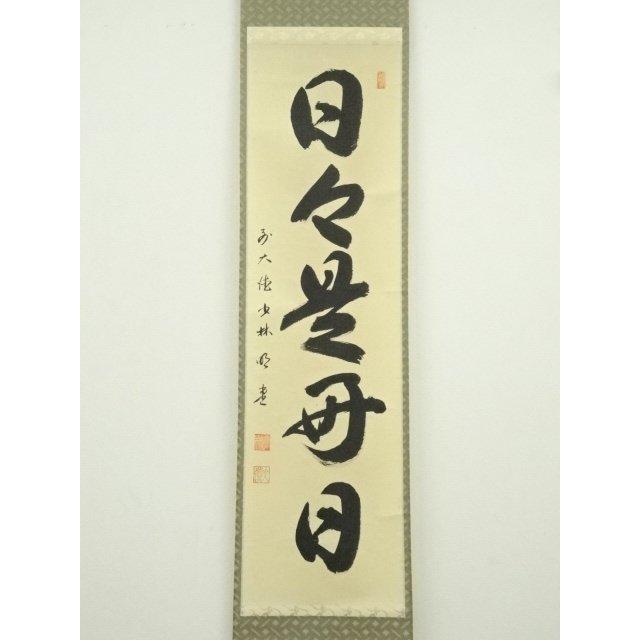 日々是好日
前大徳少林明堂